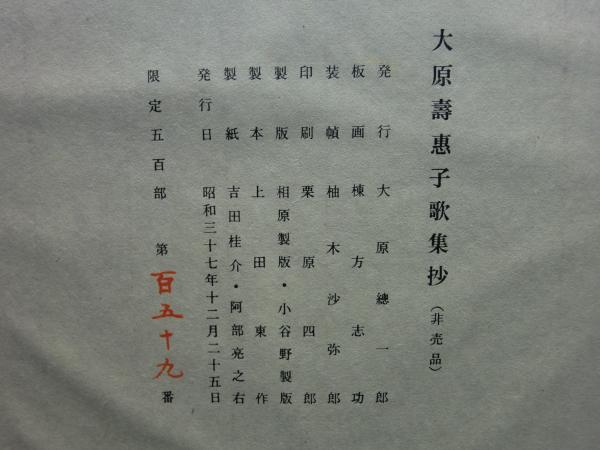 大原壽惠子歌集抄（非売品）
発行 大原總一郎
板画 棟方志功
装幀 柚木沙弥郎
印刷 栗原四郎
製版 相原製版・小谷野製版
製本 上田東作
製紙 吉田桂介・阿部亮之右
発行日 昭和三十七年十二月二十五日
限定五百部 第百五十九番